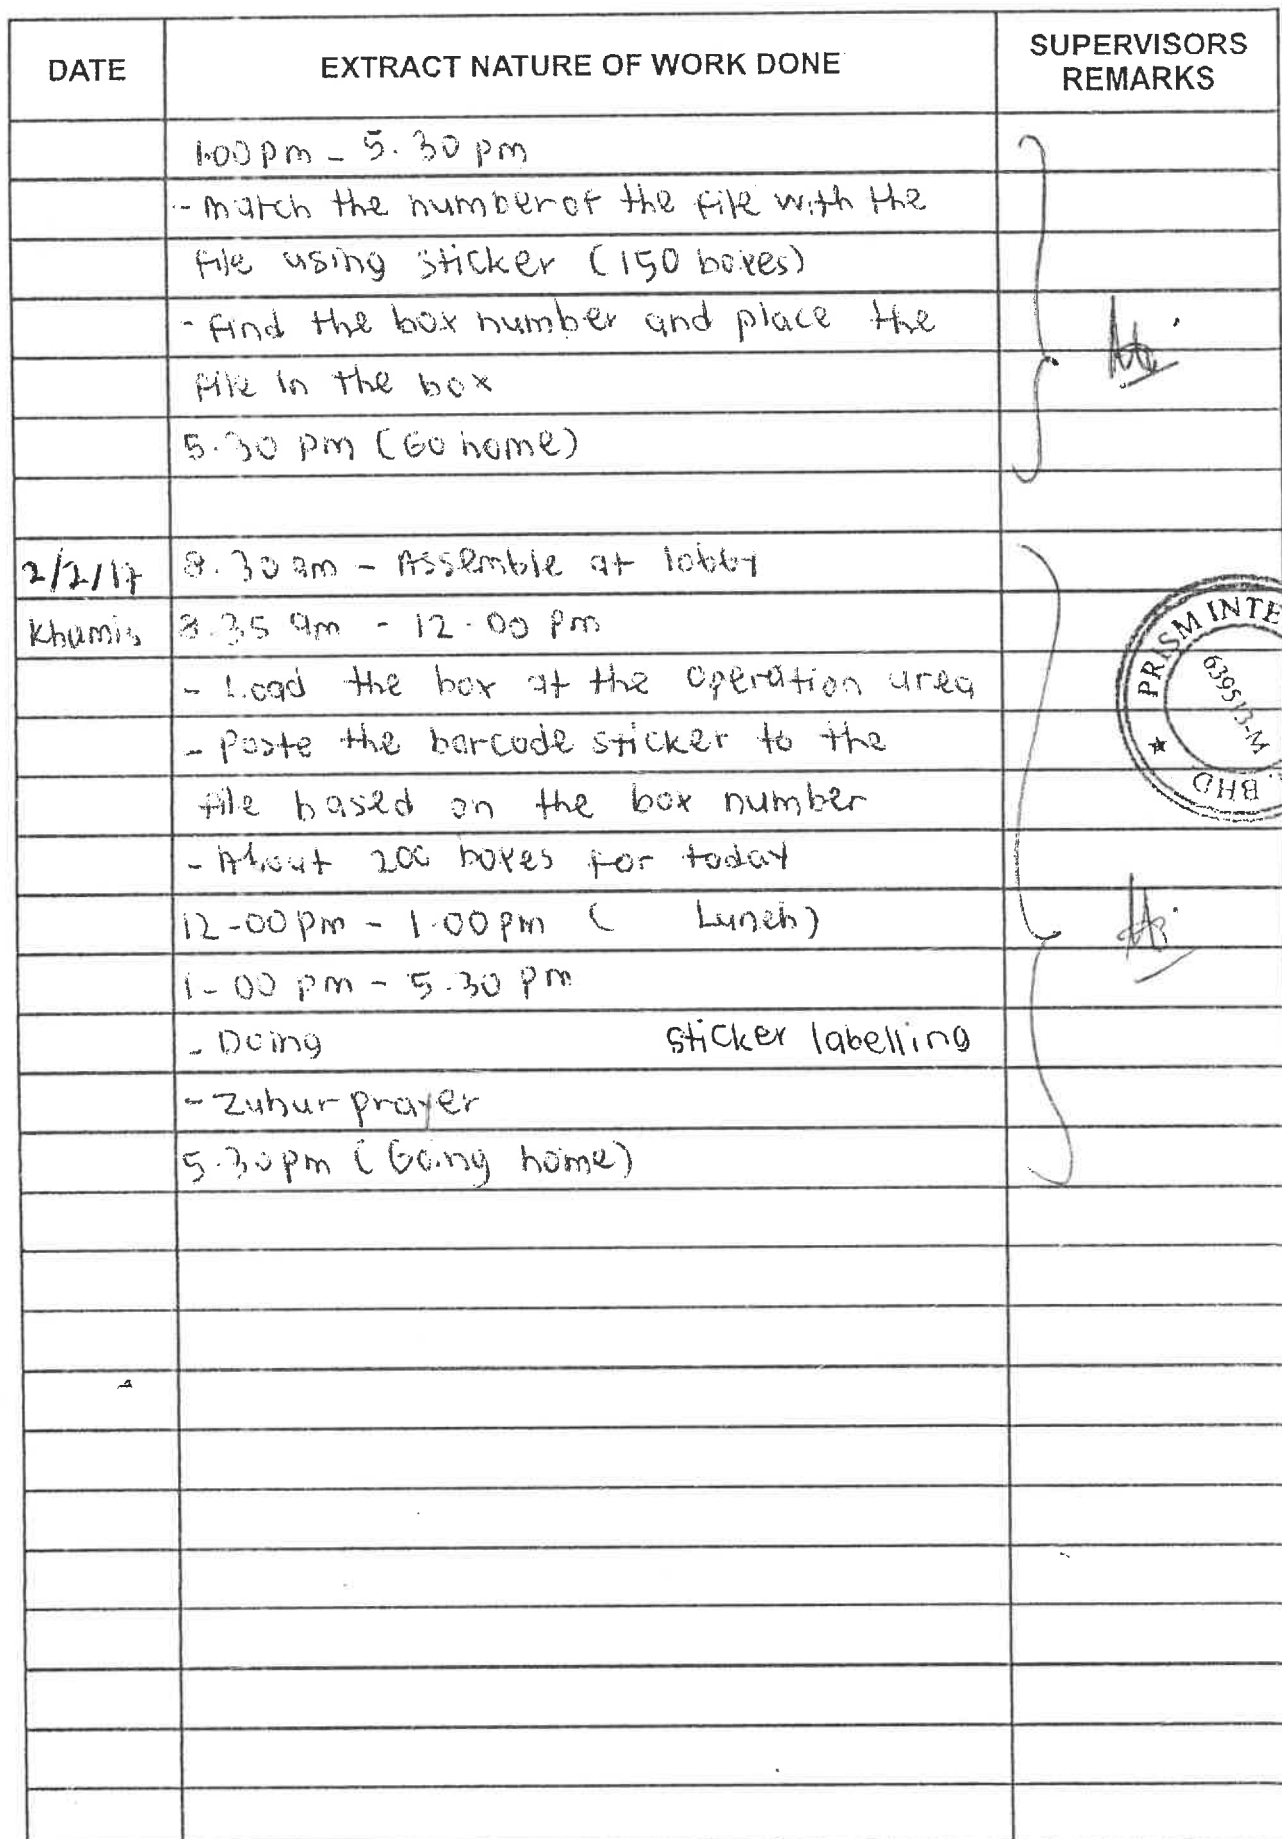 DATE EXTRACT NATURE OF WORK DONE SUPERVISORS REMARKS
1.00 pm - 5.30 pm
- Match the number of the file with the
file using sticker (150 boxes)
- Find the box number and place the
file in the box
5.30 pm (Go home)
2/2/17 8.30 am - Assemble at lobby
Khamis 8.35 am - 12.00 pm
- Load the box at the operation area
- Paste the barcode sticker to the
file based on the box number
- About 200 boxes for today
12-00 pm - 1.00 pm ( Lunch)
1-00 pm - 5.30 pm
- Doing sticker labelling
- Zuhur prayer
5.30 pm (Going home)
PRISM INTE
639513-M
BHD